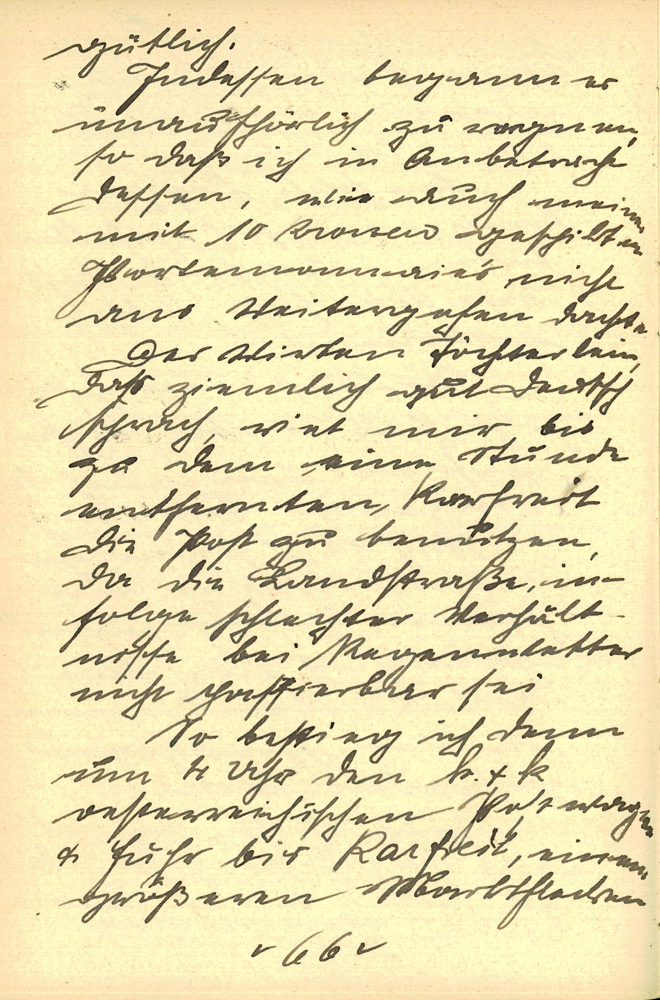 gütlich.
Indessen begann es
unaufhörlich zu regnen,
so daß ich in Anbetracht
dessen, wie auch meines
mit 10 Kronen gespikten
Portemonnaies nicht
ans Weitergehen dachte.
Des Wirten Töchterlein,
daß ziemlich gut deutsch
sprach, riet mir bis
zu dem eine Stunde
entfernten, Karfreit
die Post zu benützen,
da die Landstraße, in-
folge schlechter Verhält-
nisse bei Regenwetter
nicht passierbar sei
So bestieg ich denn
um 4 Uhr den k. + k
oesterreichischen Postwagen
& fuhr bis Karfreit, einem
größeren Marktflecken
~ 66 ~